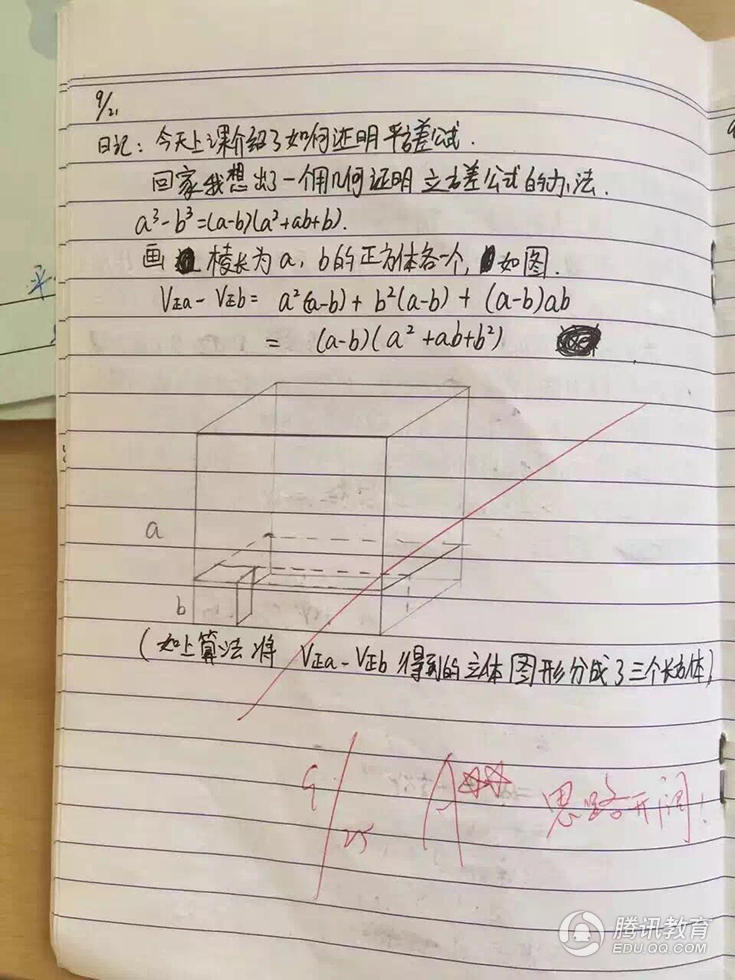 9/21
日记：今天上课介绍了如何证明平方差公式．
回家我想出了一个用几何证明立方差公式的办法．
a³-b³=(a-b)(a²+ab+b).
画 棱长为a，b的正方体各一个，如图．
V正a-V正b= a²(a-b)+b²(a-b)+(a-b)ab
= (a-b)(a²+ab+b²)
a
b
(如上算法将 V正a-V正b得到的立体图形分成了三个长方体)
9/25 思路开阔！
腾讯教育
EDU.QQ.COM